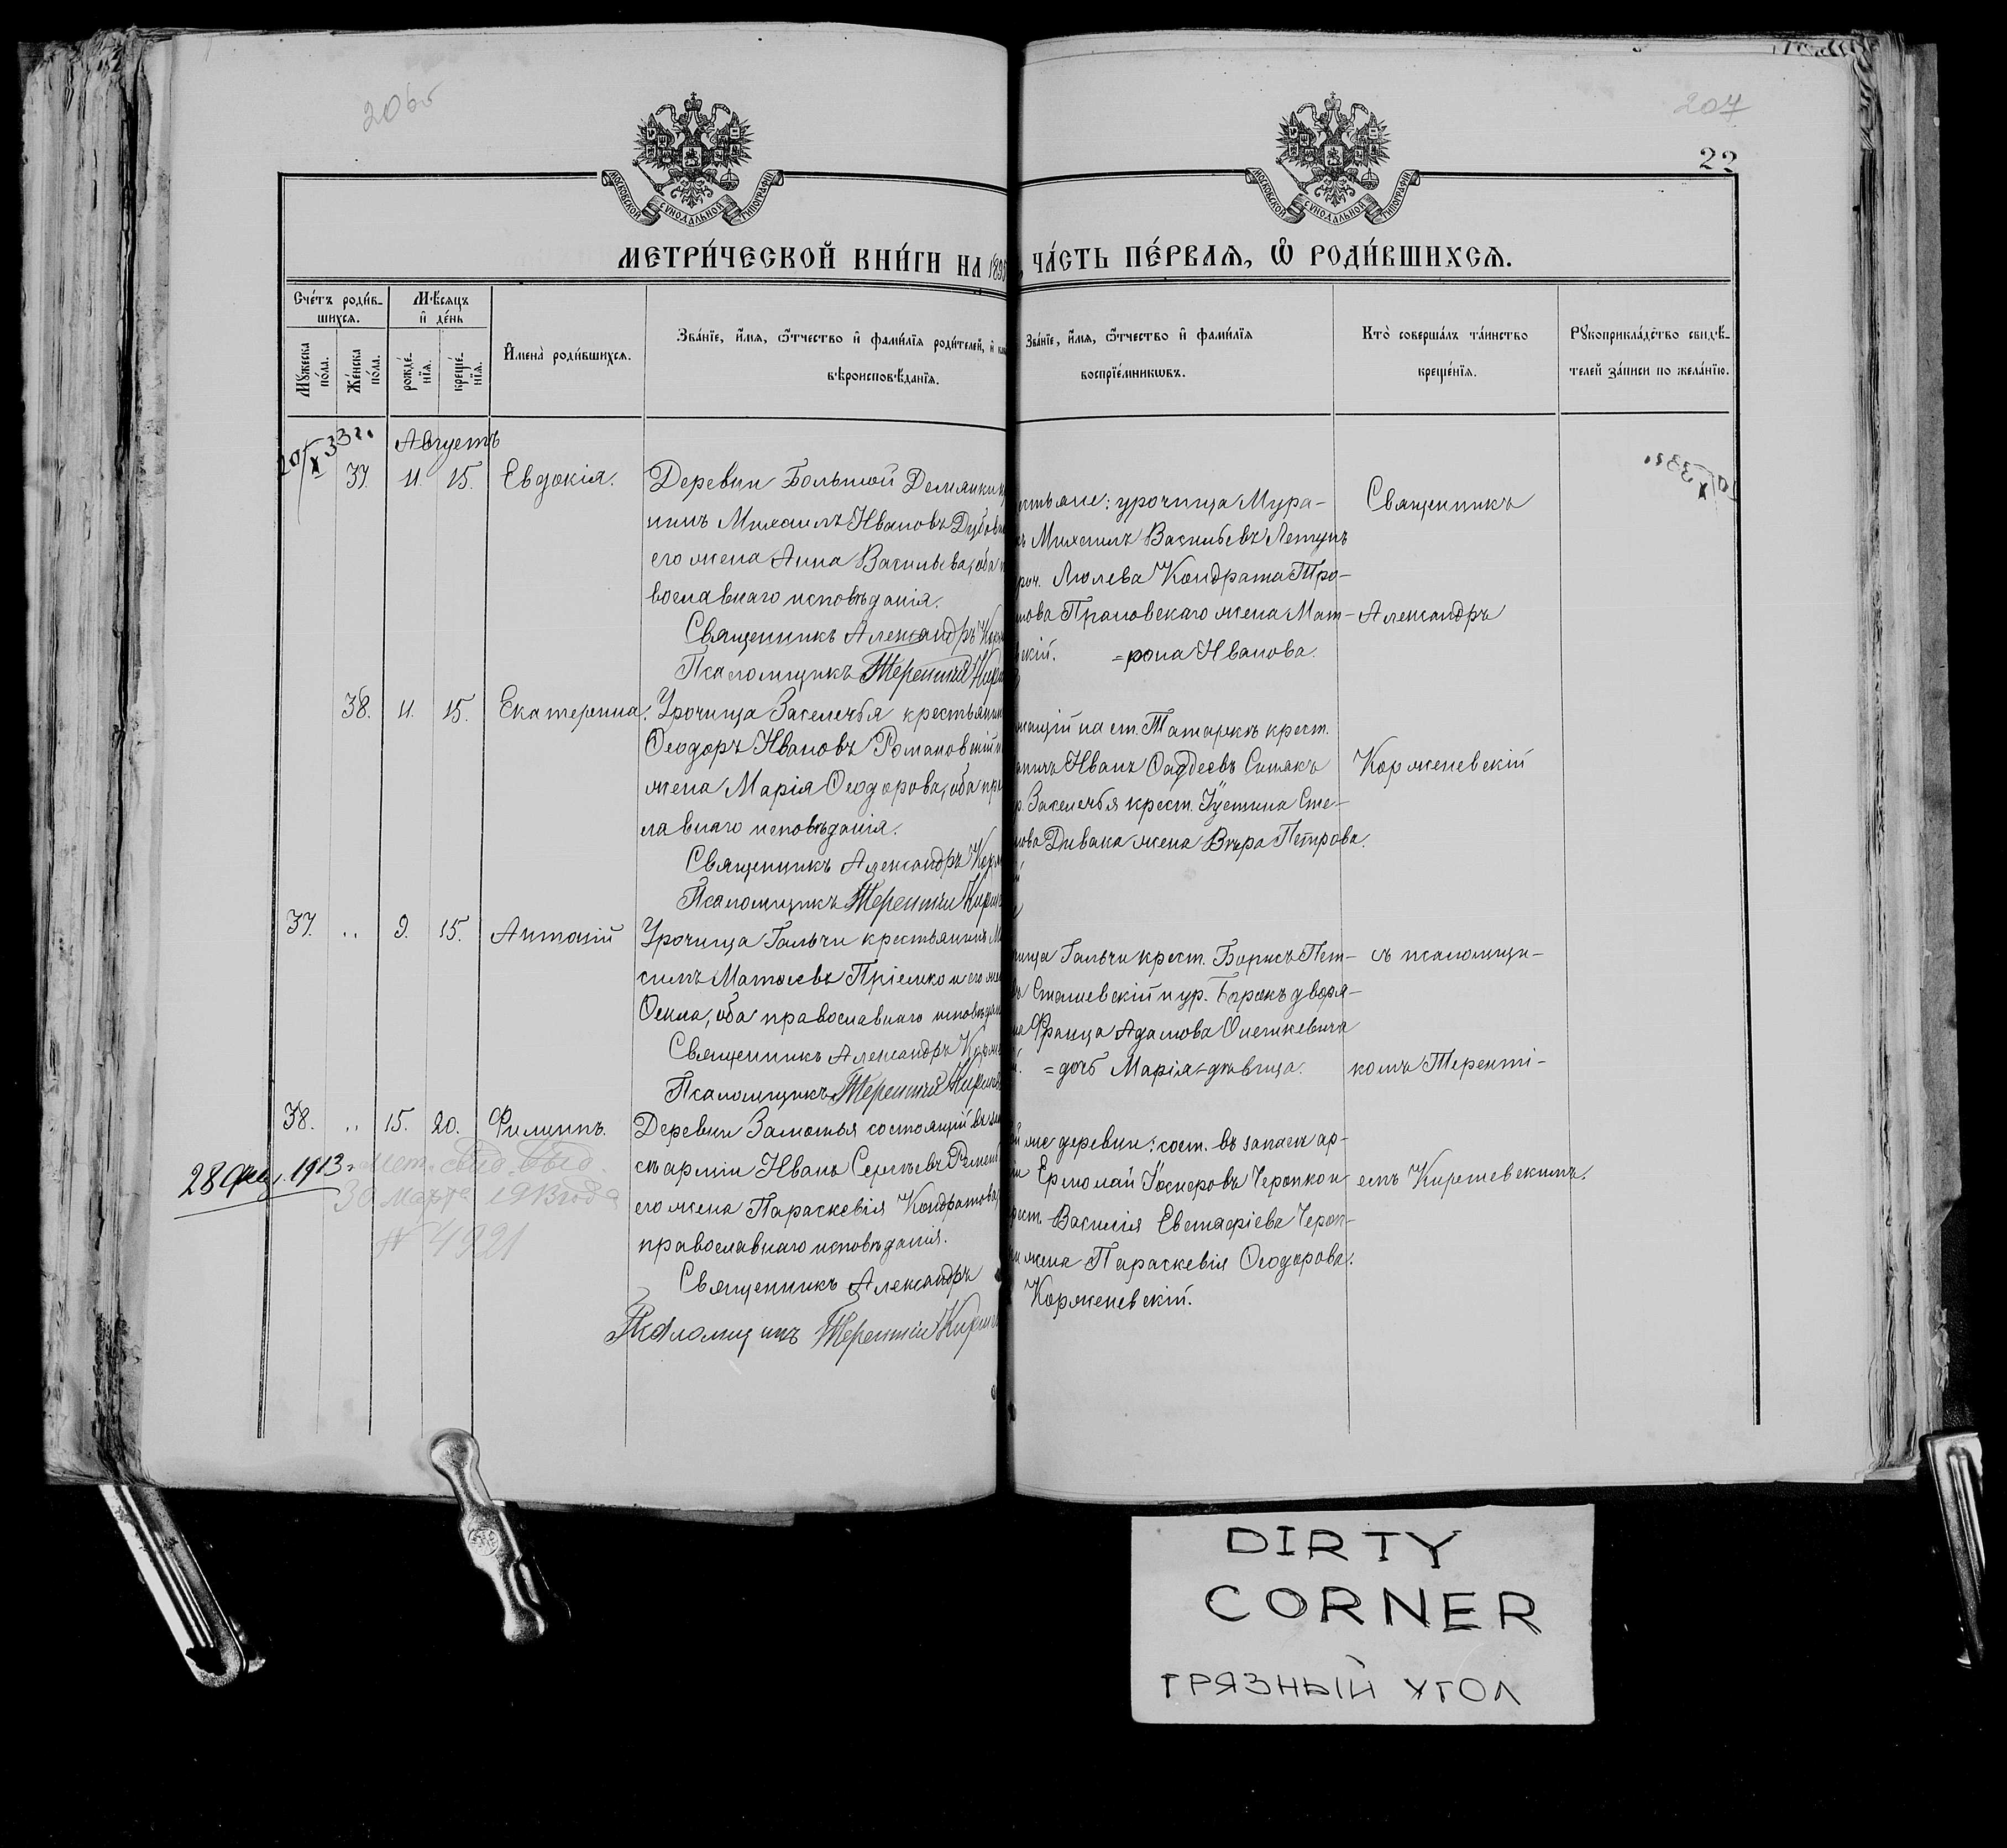 206об
207
22
МОСКОВСКОЙ СѴНОДАЛЬНОЙ ТИПОГРАФІИ
МОСКОВСКОЙ СѴНОДАЛЬНОЙ ТИПОГРАФІИ
МЕТРИ́ЧЕСКОЙ КНИ́ГИ НА 189
ЧА́СТЬ ПЕ́РВАѦ, Ѡ҆ РОДИ́ВШИХСѦ.
Сче́тъ роди́в-
шихсѧ.
Мꙋ́жеска по́ла.
Же́нска по́ла.
Мѣ́сѧцъ
и҆ де́нь
рожде́-
нїѧ.
креще́-
нїѧ.
И҆мена̀ роди́вшихсѧ.
Зва́нїе, и҆́мѧ, ѻ҆́тчество и҆ фами́лїѧ роди́телей, и҆
вѣроисповѣ́данїѧ.
Зва́нїе, и҆́мѧ, ѻ҆́тчество и҆ фами́лїѧ
воспрїе́мникѡвъ.
Кто̀ соверша́лъ та́инство
креще́нїѧ.
Рꙋкоприкла́дство свидѣ́-
телей за́писи по жела́нїю.
Августъ
37. 11. 15. Евдокія.
Деревни Большой Демянки
нинъ Михаилъ Ивановъ
его жена Анна Васильева, оба
вославнаго исповѣданія.
Священникъ Александръ
Псаломщикъ Терентій
естьяне: урочища Мура-
Михаилъ Васильевъ Летунъ
Люлева Кондрата Тро-
жена Мат-
вскій. =рона Иванова.
Священникъ
Александръ
38. 11. 15. Екатерина.
Урочища Заселечья крестьянин
Ѳеодоръ Ивановъ Романовскій и
жена Марія Ѳеодорова, оба пра
лавнаго исповѣданія.
Священникъ Александръ
Псаломщикъ Терентій
жащій на ст. Татаркѣ крест.
Иванъ Ѳаддеевъ Симакъ
Заселечья крест. Іустина Сте-
нова Дивака жена Вѣра Петрова.
Корженевскій
37. ,, 9. 15. Антоній
Урочища Гальчи крестьянинъ
симъ Матѳеевъ Пріемко и его же
Ѳекла, оба православнаго исповѣдан
Священникъ Александръ
Псаломщикъ Терентій
чища Гальчи крест. Борисъ Пет-
Сташевскій и ур. Борокъ дворя-
Франца Адамова Олешкевича
=дочь Марія-дѣвица.
съ псаломщи-
комъ Теренті-
38. ,, 15. 20. Филиппъ.
Деревни Замостья состоящій въ
съ арміи Иванъ Сергѣевъ
его жена Параскевія Кондратова,
православнаго исповѣданія.
Священникъ Александръ
Псаломщикъ Терентій
же деревни: сост. въ запасѣ ар-
Ермолай Іосифовъ Черопко и
Василія Евстафіева Чероп-
жена Параскевія Ѳеодорова.
Корженевскій.
емъ Киршевскимъ.
28 1913
30 марта 1913 года
№ 4921
DIRTY
CORNER
ГРЯЗНЫЙ УГОЛ